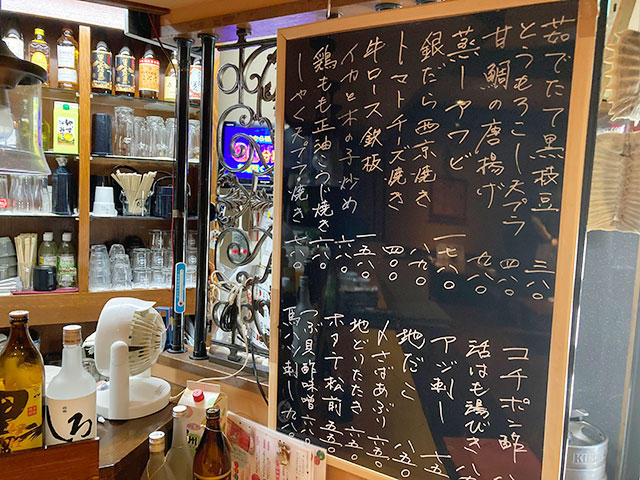 茹でたて黒枝豆 三八〇
とうもろこし天プラ 四八〇
甘鯛の唐揚げ 九八〇
蒸しアワビ 一七八〇
銀だら西京焼き 八九〇
トマトチーズ焼き 四〇〇
牛ロース鉄板 一五八〇
イカと木の子炒め 六八〇
鶏もも正油こうじ焼き 六八〇
七八〇
コチポン酢
活はも湯びき
アジ刺し
地だこ 八五〇
〆さばあぶり 六五〇
地どりたたき 六五〇
ホタテ松前 五五〇
つぶ貝酢味噌 六
馬 刺し 九八
しろ
黒